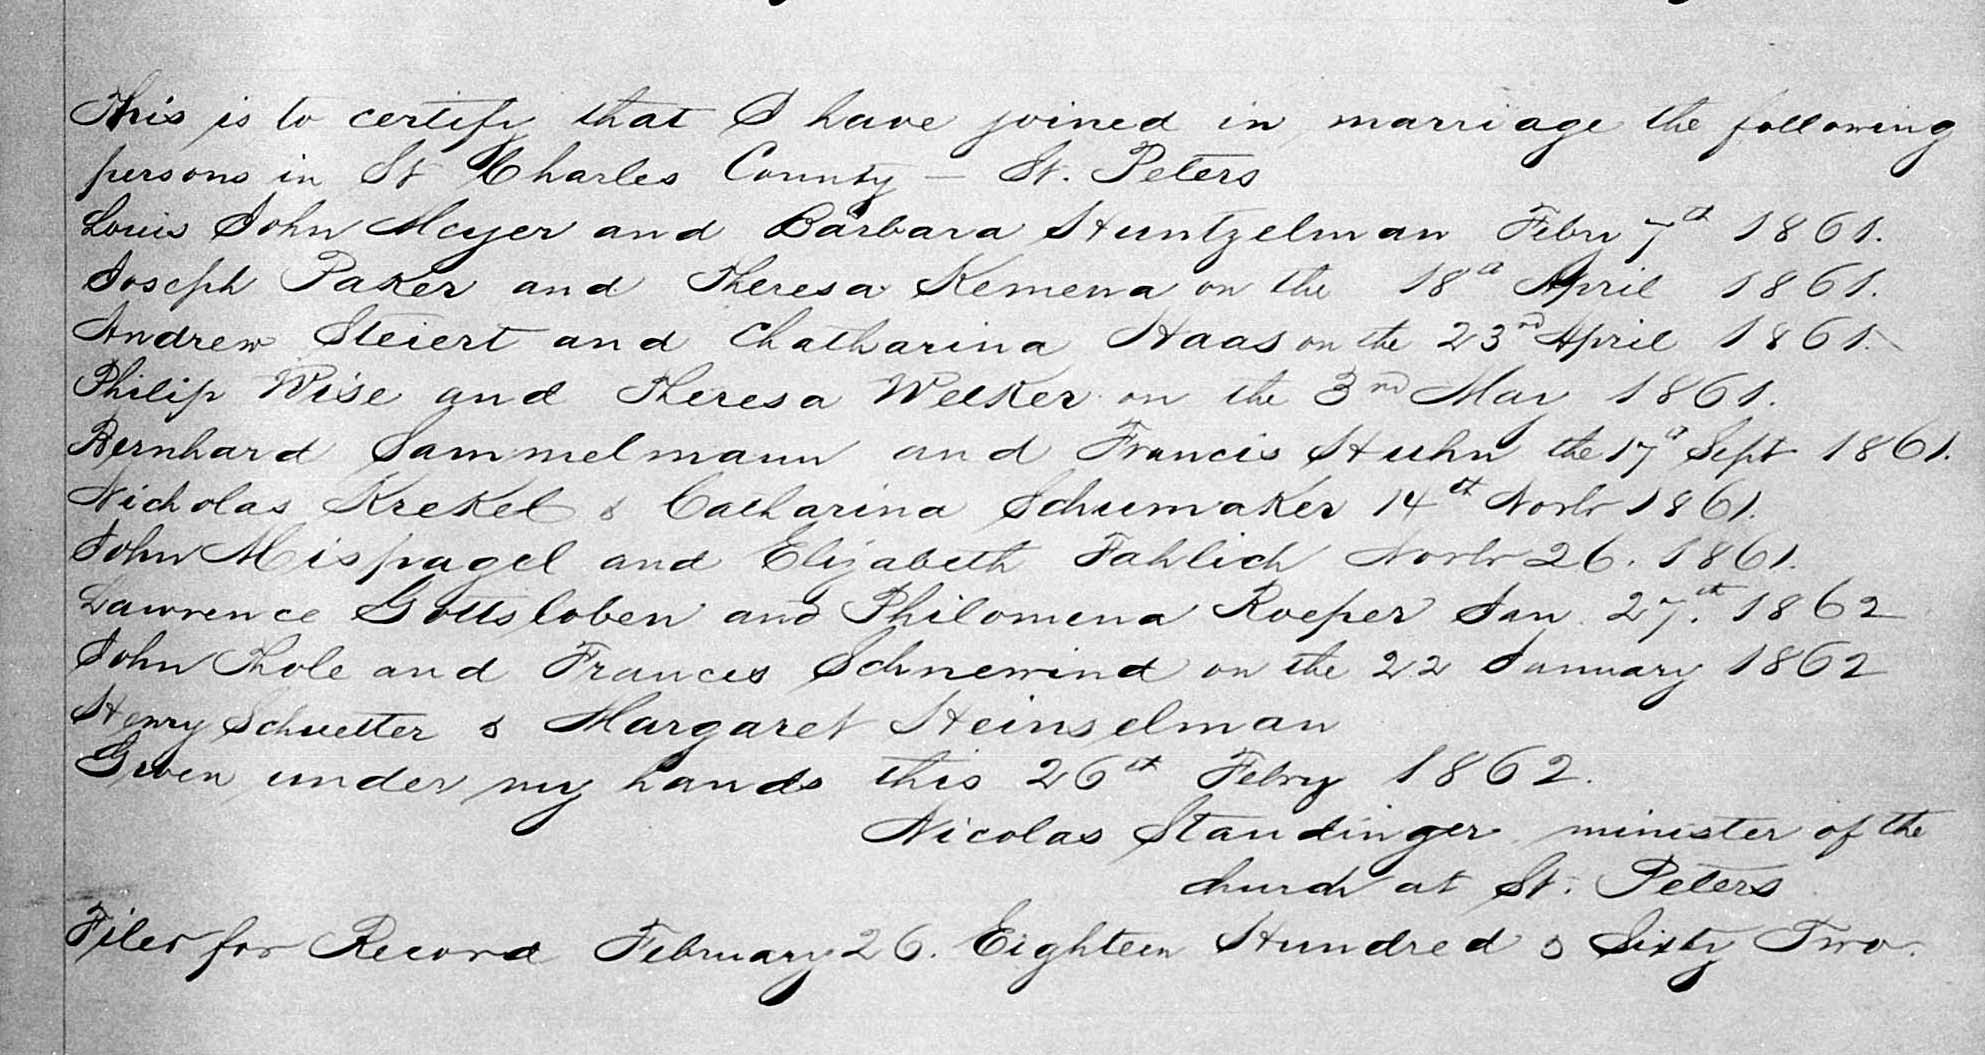 This is to certify that I have joined in marriage the following
persons in St Charles County — St. Peters
Louis John Meyer and Barbara Huntzelman Febry 7th 1861.
Joseph Paker and Theresa Kemena on the 18th April 1861.
Andrew Steiert and Chatharina Haas on the 23rd April 1861.
Philip Wise and Theresa Welker on the 3rd May 1861.
Bernhard Sammelmann and Francis Huhn the 17th Sept 1861.
Nicholas Krekel & Catharina Schumaker 14th Novbr 1861.
John Mispagel and Elizabeth Fahlich Novbr 26. 1861.
Lawrence Gottsloben and Philomena Roeper Jan. 27.th 1862
John Thole and Frances Schnewind on the 22 January 1862
Henry Schuetter & Margaret Heinselman
Given under my hands this 26th Febry 1862.
Nicolas Staudinger minister of the
church at St. Peters
Filed for Record February 26. Eighteen Hundred & Sixty Two.